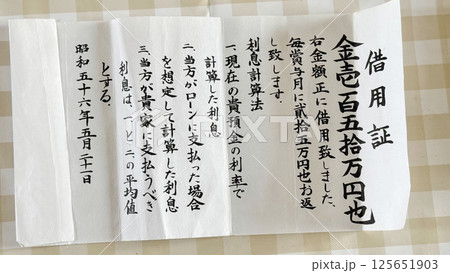 借用証
金壱百五拾万円也
右金額正に借用致しました、
毎賞与月に弐拾五万円也お返
し致します。
利息計算法
一、現在の貴預金の利率で
計算した利息
二、当方がローンに支払った場合
を想定して計算した利息
三、当方が貴家に支払うべき
利息は、一、と二、の平均値
とする。
昭和五十六年五月二十一日
PIXTA
pixta.jp - 125651903